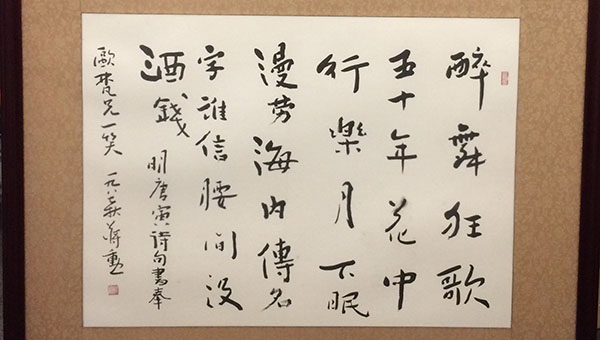 醉舞狂歌
五十年花中
行樂月下眠
漫勞海內傳名
字誰信腰間沒
酒錢 明唐寅詩句書奉
歐梵兄一笑 一九八 秋 蔣勳